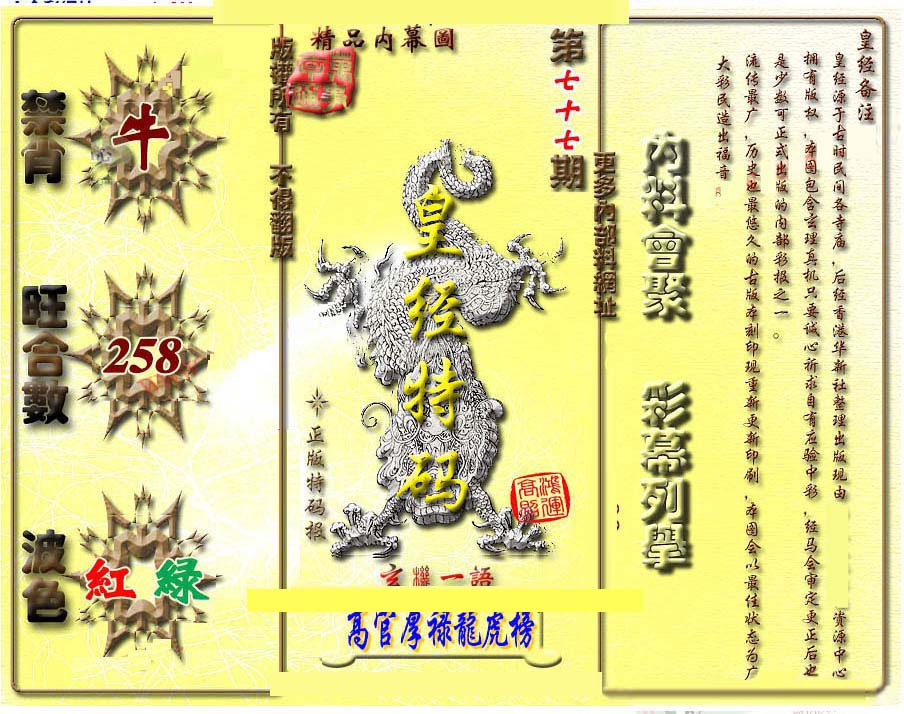 精品内幕圖
第七十七期
版權所有 不得翻版
更多內部料網址
禁肖
牛
旺合數
258
波色
紅 綠
皇经特码
正版特码报
鴻運高照
玄機一語
高官厚祿龍虎榜
內料會聚
彩幕列舉
皇经备注
皇经源于古时民间各寺庙,后经香港华新社整理出版现由 资源中心
拥有版权,本图包含玄理真机只要诚心祈求自有应验中彩,经马会审定更正后也
是少数可正式出版的内部彩报之一。
流传最广,历史也最悠久的古版本刻印现重新更新印刷,本图会以最佳状态为广
大彩民造出福音